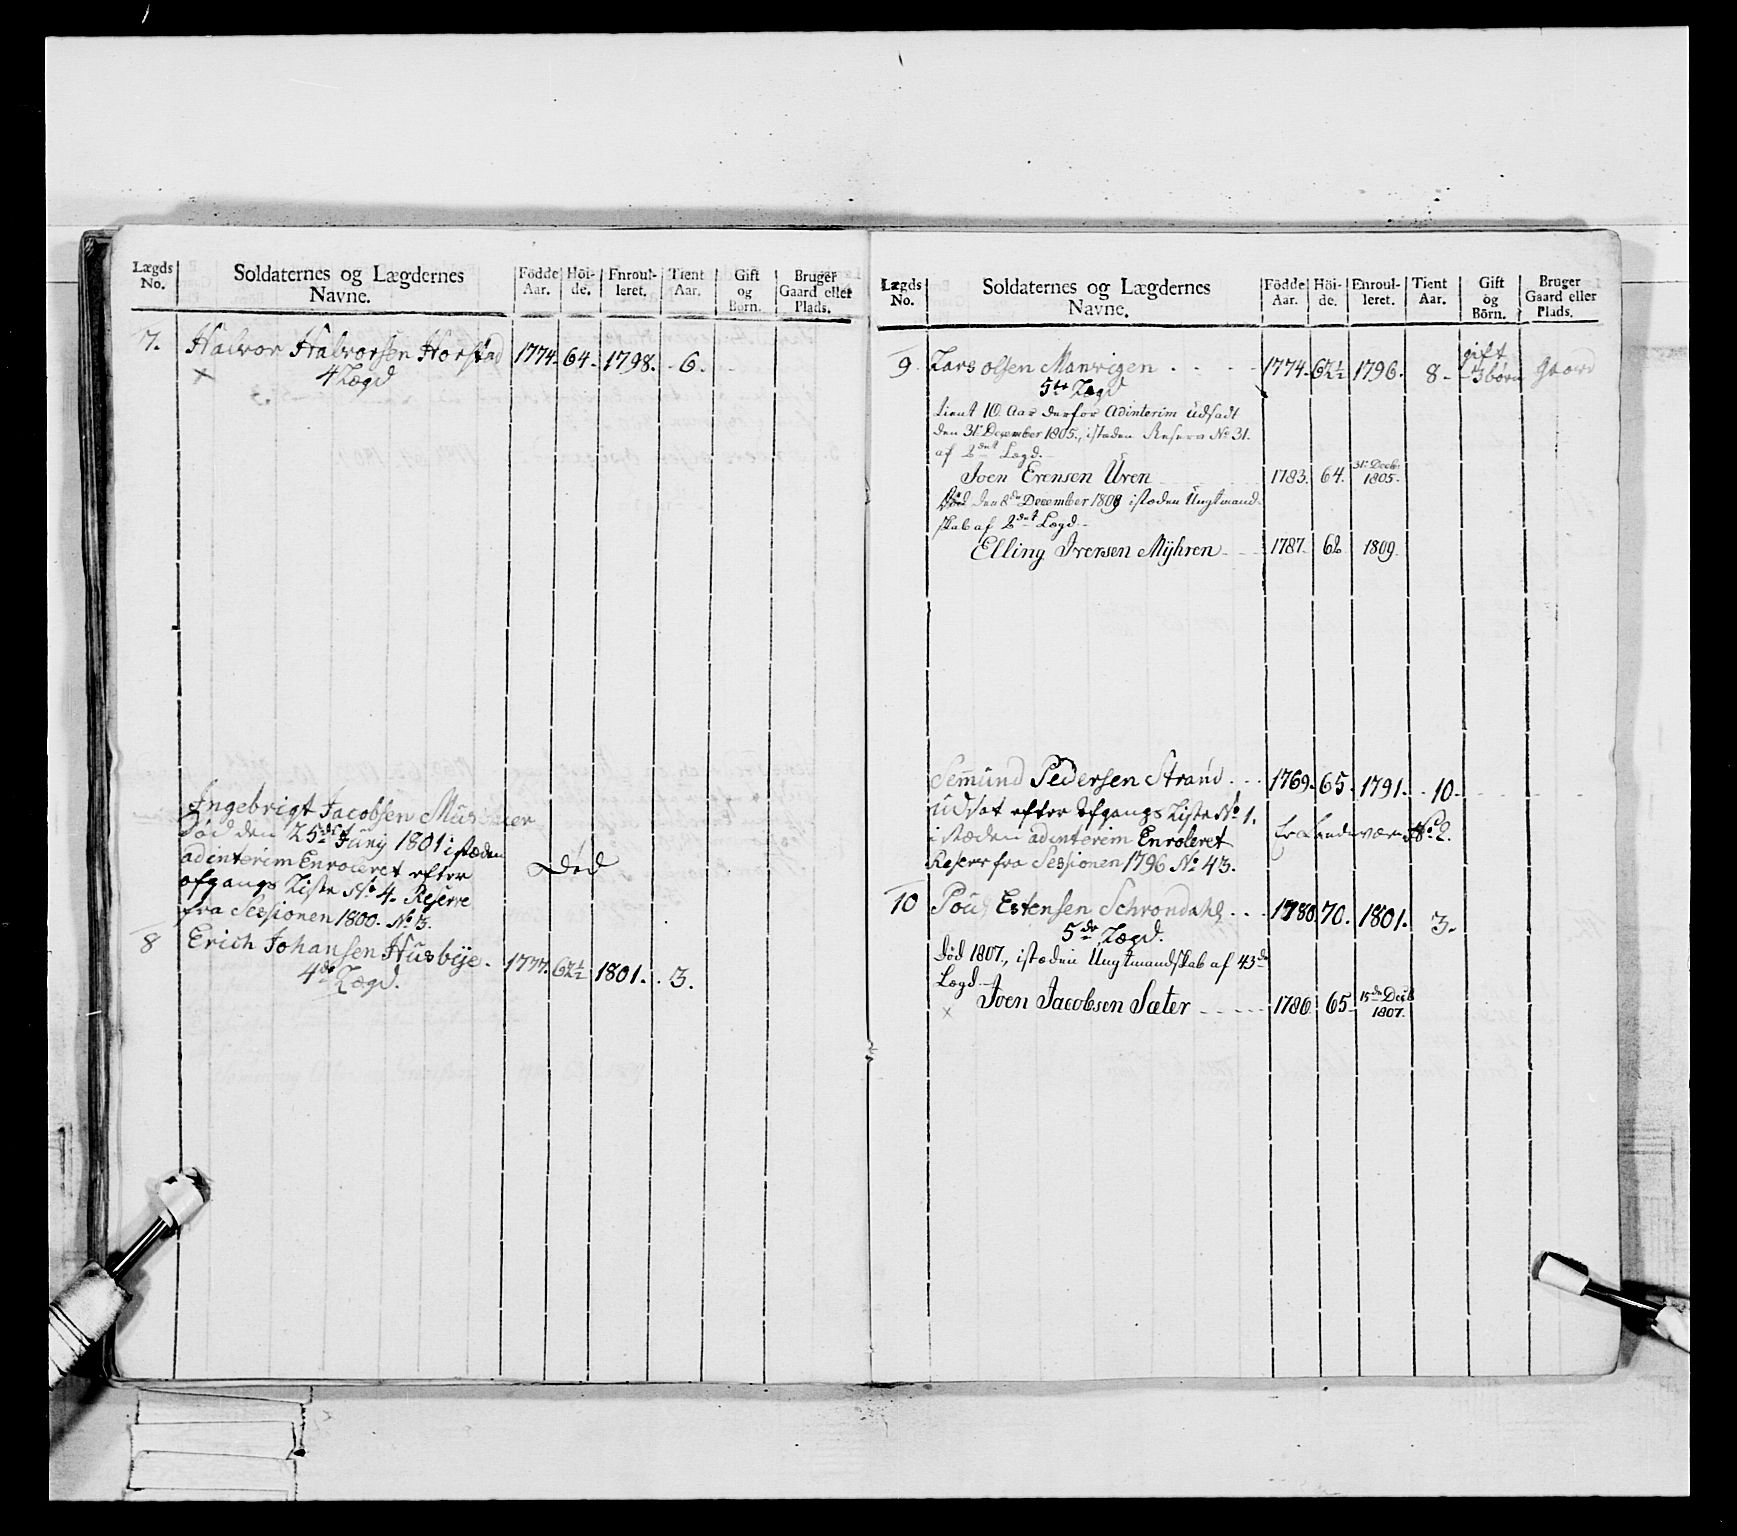 Lægds No. | Soldaternes og Lægdernes Navne. | Födde Aar. | Höi- de. | Enroul- leret. | Tient Aar. | Gift og Börn. | Bruger Gaard eller Plads.
7. Halvor Halvorsen Horstad 1774. 64. 1798. 6.
4 Lægd
×
Ingebrigt Jacobsen
Död den 25de Juny 1801 i stæden
ad interim Enroleret efter Död
afgangs Liste No 4. Reserve
fra Sessionen 1800. No 3.
8 Erich Johansen Husbye. 1777. 62½ 1801. 3.
4de Lægd.
Lægds No. | Soldaternes og Lægdernes Navne. | Födde Aar. | Höi- de. | Enroul- leret. | Tient Aar. | Gift og Börn. | Bruger Gaard eller Plads.
9 Lars Olsen 1774. 62½ 1796. 8. gift 3 börn Gaard
5te Lægd
tient 10 Aar derfor Adinterim Udsadt
den 31te December 1805., istæden Reserv No 31.
af 2det Lægd.
Joen Evensen Uren 1783. 64. 31te Decbr 1805.
Död den 8de December 1809 istæden Ungtmand-
skab af 2det Lægd.
Elling Iversen Mÿhren 1787. 62 1809.
Semund Pedersen Strand 1769. 65. 1791. 10.
Udsat efter Afgangs Liste No 1.
i stæden ad interim Enroleret Fra Landeværn No 2.
Reserv fra Sessionen 1796 No 43.
10 Poul Estensen Schrondahl 1780. 70. 1801. 3.
5de Lægd.
Död 1807, istæden Ungtmandskab af 43de
Lægd.
× Joen Jacobsen Sæter 1786. 65. 15de Decb 1807.